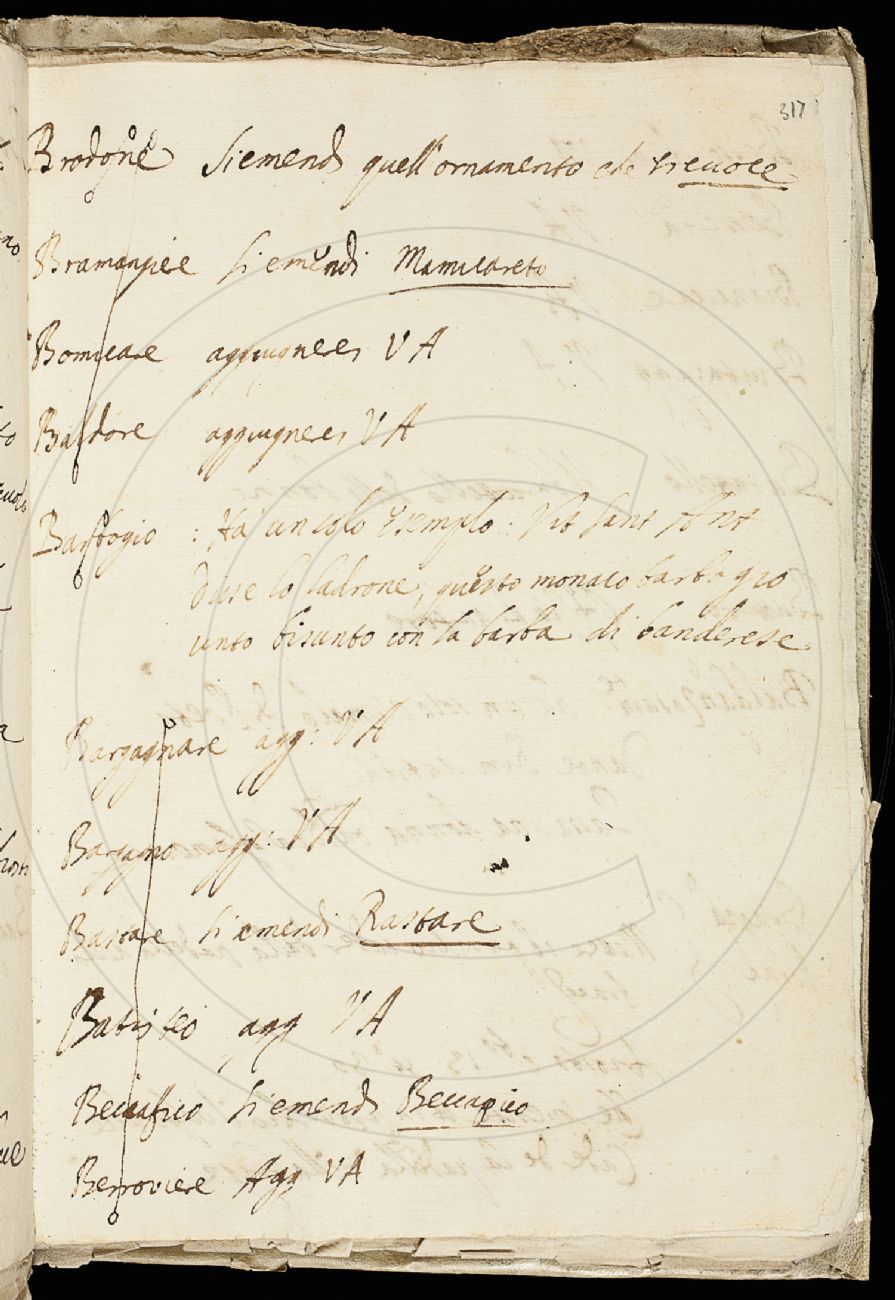 317
Brodone Si emendi quell'ornamento che
Bramangiere Si emendi
aggiugnersi VA
Baldore aggiugnersi VA
Barbogio : Ha un solo Esemplo: Vit Sant Ant
disse lo ladrone, questo monaco barbogio
unto bisunto con la barba di banderese
Bargagnare agg: VA
Bargagno agg: VA
Bastare Si emendi Rastare
agg VA
Beccafico Si emendi
Berroviere Agg VA